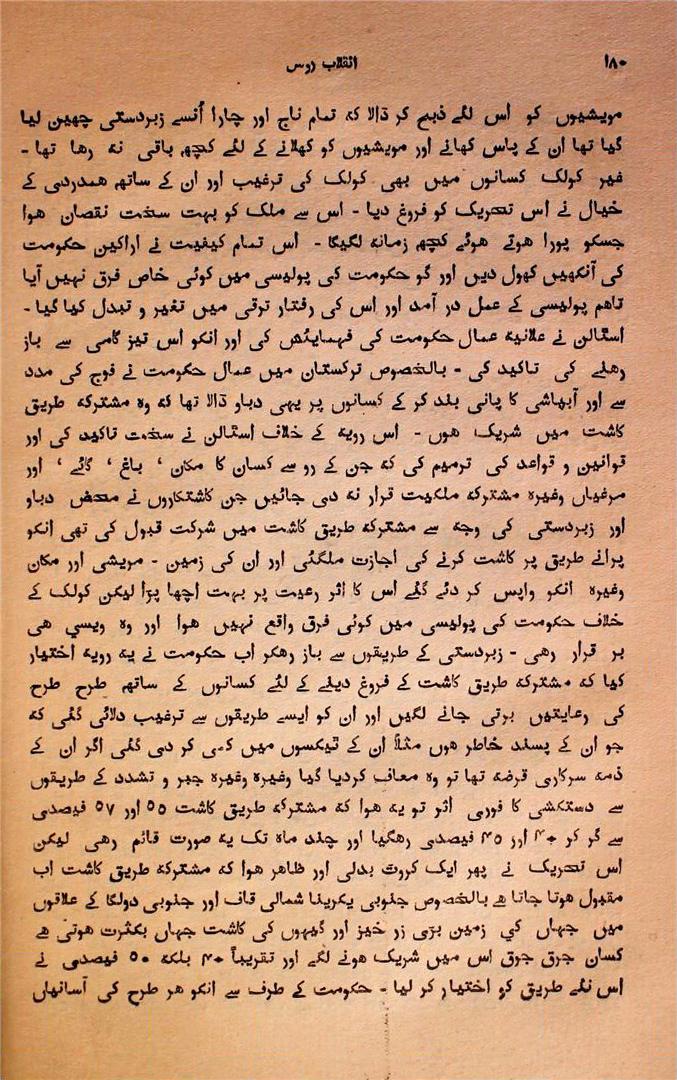 ۱۸۰ انقلاب روس
مویشیوں کو اس لئے ذبح کر ڈالا کہ تمام ناج اور چارا اُنسے زبردستی چھین لیا
گیا تھا ان کے پاس کھانے اور مویشیوں کو کھلانے کے لئے کچھہ باقی نہ رھا تھا -
غیر کولک کسانوں میں بھی کولک کی ترغیب اور ان کے ساتھہ ھمدردی کے
خیال نے اس تحریک کو فروغ دیا - اس سے ملک کو بہت سخت نقصان ھوا
جسکو پورا ھوتے ھوئے کچھہ زمانہ لگیگا - اس تمام کیفیت نے اراکین حکومت
کی آنکھیں کھول دیں اور گو حکومت کی پولیسی میں کوئی خاص فرق نہیں آیا
تاھم پولیسی کے عمل در آمد اور اس کی رفتار ترقی میں تغیر و تبدل کیا گیا -
اسٹالن نے علانیہ عمال حکومت کی فہمایئش کی اور انکو اس تیز گامی سے باز
رھنے کی تاکید کی - بالخصوص ترکستان میں عمال حکومت نے فوج کی مدد
سے اور آبپاشی کا پانی بند کر کے کسانوں پر یہی دباو ڈالا تھا کہ وہ مشترکہ طریق
کاشت میں شریک ھوں - اس رویہ کے خلاف اسٹالن نے سخت تاکید کی اور
قوانین و قواعد کی ترمیم کی کہ جن کے رو سے کسان کا مکان ‘ باغ ‘ گائے ‘ اور
مرغیاں وغیرہ مشترکہ ملکیت قرار نہ دی جائیں جن کاشتکاروں نے محض دباو
اور زبردستی کی وجہ سے مشترکہ طریق کاشت میں شرکت قبول کی تھی انکو
پرانے طریق پر کاشت کرنے کی اجازت ملگئی اور ان کی زمین - مریشی اور مکان
وغیرہ انکو واپس کر دئے گئے اس کا اثر رعیت پر بہت اچھا پڑا لیکن کولک کے
خلاف حکومت کی پولیسی میں کوئی فرق واقع نہیں ھوا اور وہ ویسی ھی
بر قرار رھی - زبردستی کے طریقوں سے باز رھکر اب حکومت نے یہ رویہ اختیار
کیا کہ مشترکہ طریق کاشت کے فروغ دینے کے لئے کسانوں کے ساتھہ طرح طرح
کی رعایتیں برتی جانے لگیں اور ان کو ایسے طریقوں سے ترغیب دلائی گئی کہ
جو ان کے پسند خاطر ھوں مثلاً ان کے ٹیکسوں میں کمی کر دی گئی اگر ان کے
ذمہ سرکاری قرضہ تھا تو وہ معاف کردیا گیا وغیرہ وغیرہ جبر و تشدد کے طریقوں
سے دستکشی کا فوری اثر تو یہ ھوا کہ مشترکہ طریق کاشت ۵۵ اور ۵۷ فیصدی
سے گر کر ۴۰ اور ۴۵ فیصدی رھگیا اور چند ماہ تک یہ صورت قائم رھی لیکن
اس تحریک نے پھر ایک کروٹ بدلی اور ظاھر ھوا کہ مشترکہ طریق کاشت اب
مقبول ھوتا جاتا ھے بالخصوص جنوبی یکرینا شمالی قاف اور جنوبی دولگا کے علاقوں
میں جہاں کی زمین بڑی زر خیز اور گیہوں کی کاشت جہاں بکثرت ھوتی ھے
کسان جوق جوق اس میں شریک ھونے لگے اور تقریباً ۴۰ بلکہ ۵۰ فیصدی نے
اس نئے طریق کو اختیار کر لیا - حکومت کے طرف سے انکو ھر طرح کی آسانیاں